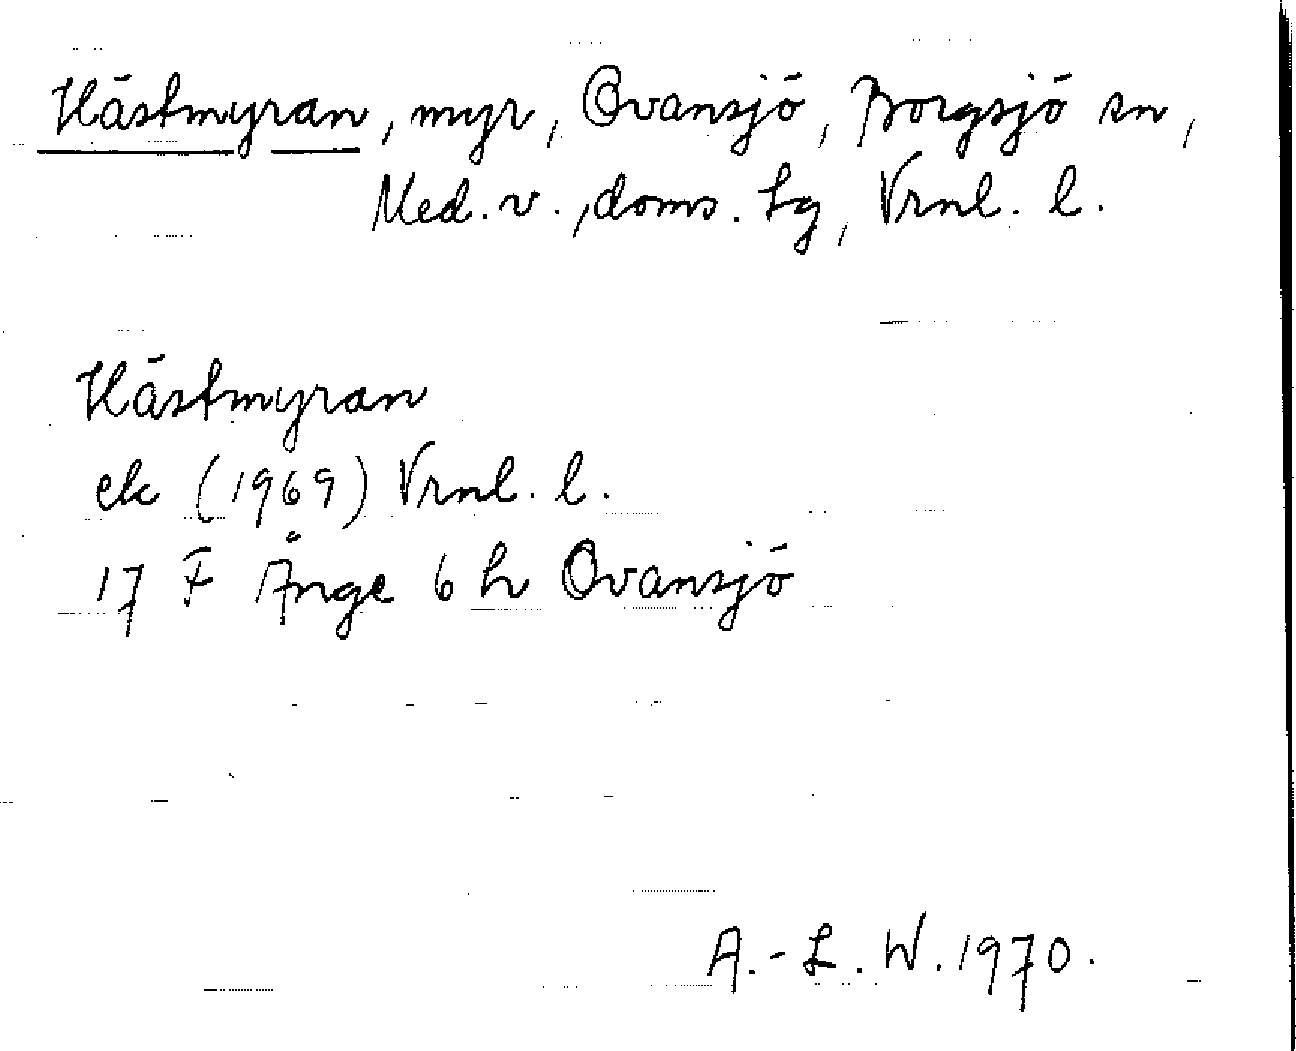 Hästmyran, myr, Ovansjö, Borgsjö sn,
Med. v., doms. lg, Vrnl. l.
Hästmyran
ek (1969) Vrnl. l.
17 F Ånge 6 h Ovansjö
A.-L. W. 1970.